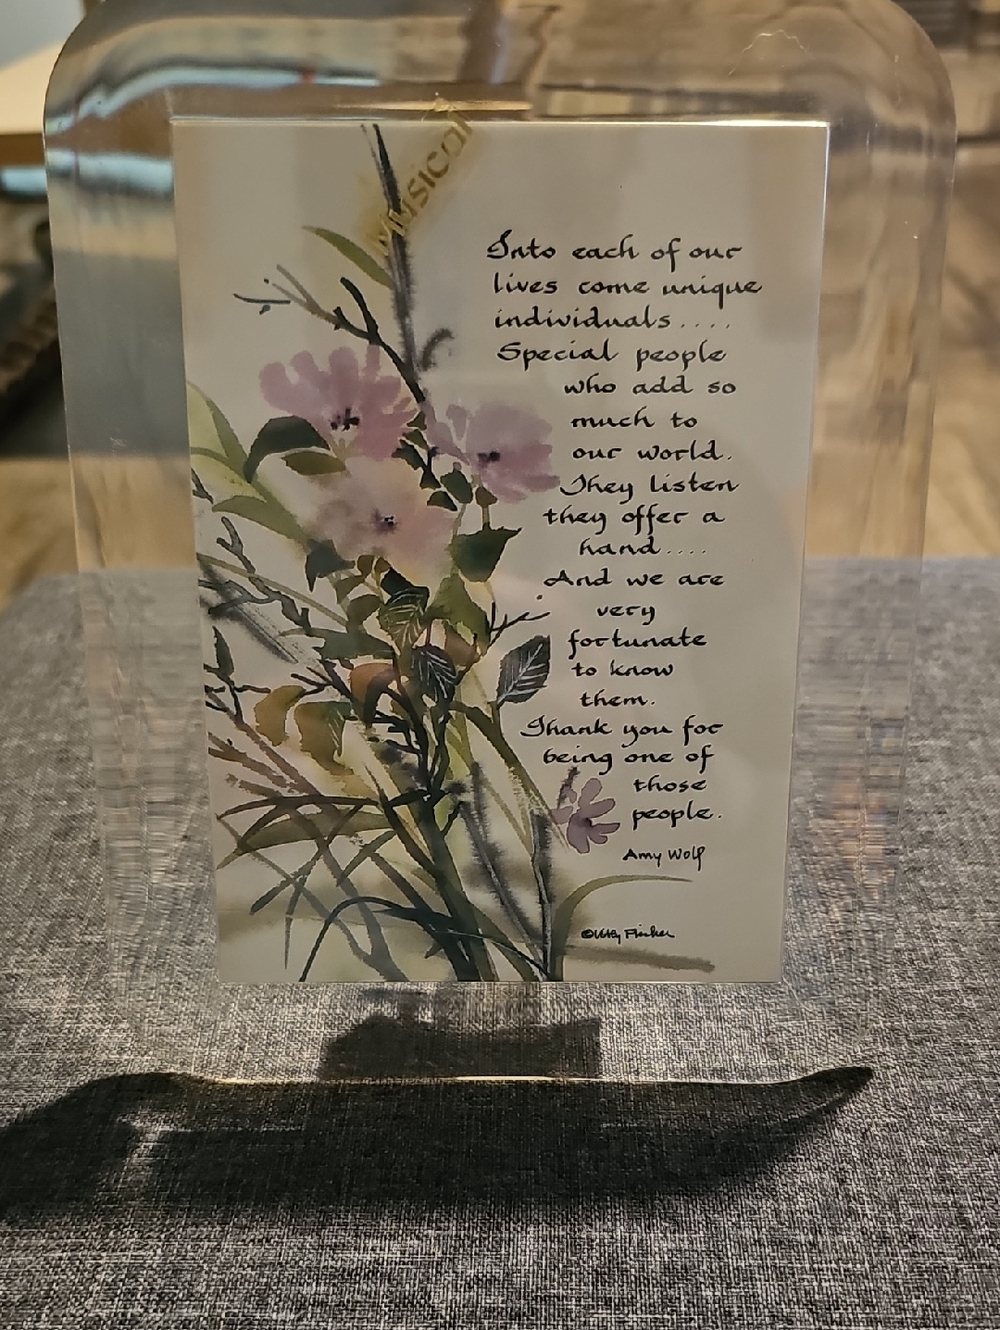 Musical
Into each of our
lives come unique
individuals....
Special people
who add so
much to
our world.
They listen
they offer a
hand....
And we are
very
fortunate
to know
them.
Thank you for
being one of
those
people.
Amy Wolf
©